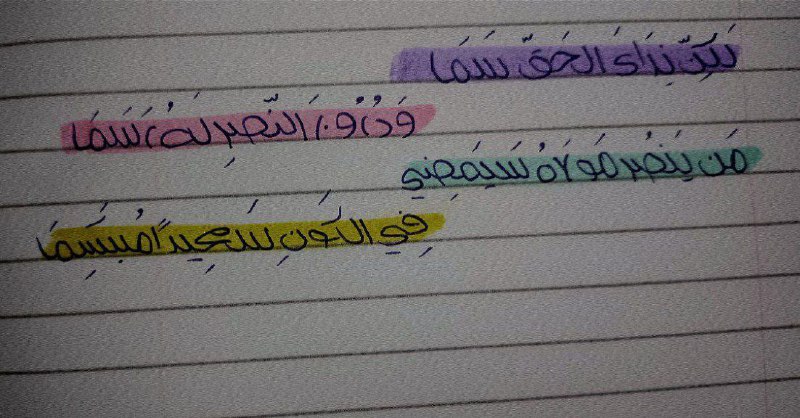 لَكِنّ نِدَاءَ الحَقّ سَمَا
وَدُرُوبَ النّصِرِ لَهُ رَسَمَا
مَن يَنصُر مَولَاهُ سَيَمضِي
فِي الكَونِ سَعِيداً مُبتَسِمَا